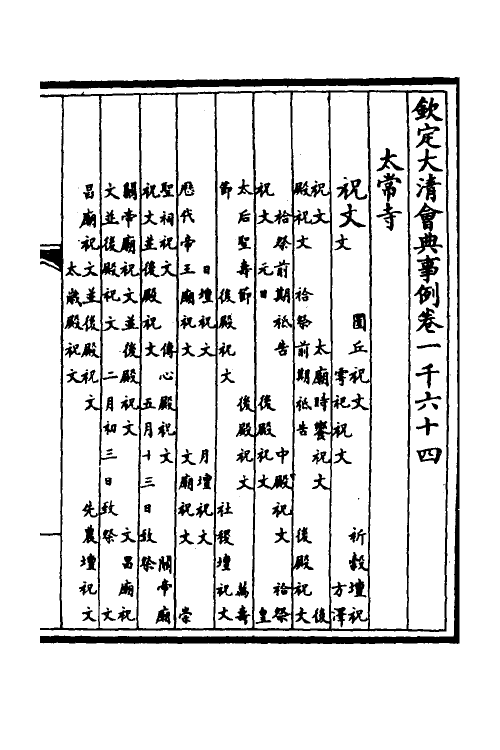 欽定大清會典事例卷一千六十四
太常寺
祝文 圜丘祝文 祈穀壇祝
文 雩祀祝文 方澤
祝文 太廟時饗祝文 後
殿祝文 祫祭前期祗告 後殿祝文
祫祭前期祗告 中殿祝文 祫祭
祝文 元日 後殿祝文 皇
太后聖壽節 後殿祝文 萬壽
節 後殿祝文 社稷壇祝文
日壇祝文 月壇祝文
厯代帝王廟祝文 文廟祝文 崇
聖祠祝文 傳心殿祝文 關帝廟
祝文並後殿祝文 五月十三日致祭
關帝廟祝文並後殿祝文 文昌廟祝
文並後殿祝文 二月初三日致祭 文
昌廟祝文並後殿祝文 先農壇祝文
太歲殿祝文